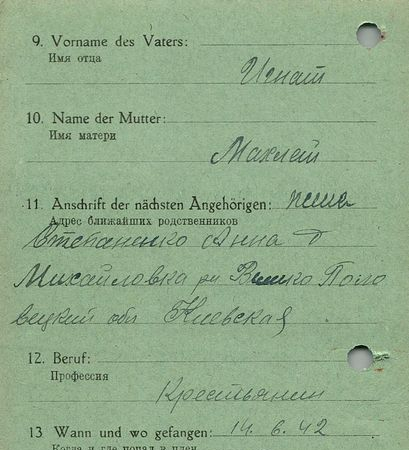 9. Vorname des Vaters:
Имя отца
Игнат
10. Name der Mutter:
Имя матери
11. Anschrift der nächsten Angehörigen: жена
Адрес ближайших родственников
Степаненко Анна Д
Михайловка рн Велико Поло
вецкий обл Киевская
12. Beruf:
Профессия
Крестьянин
13 Wann und wo gefangen: 14. 6. 42
Когда и где попал в плен